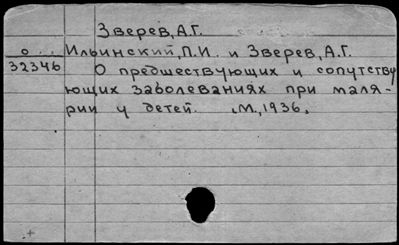 Зверев, А.Г.
о... Ильинский, П.И. и Зверев, А.Г.
32346 О предшествующих и сопутству
ющих заболеваниях при маля-
рии у детей. М., 1936.
+